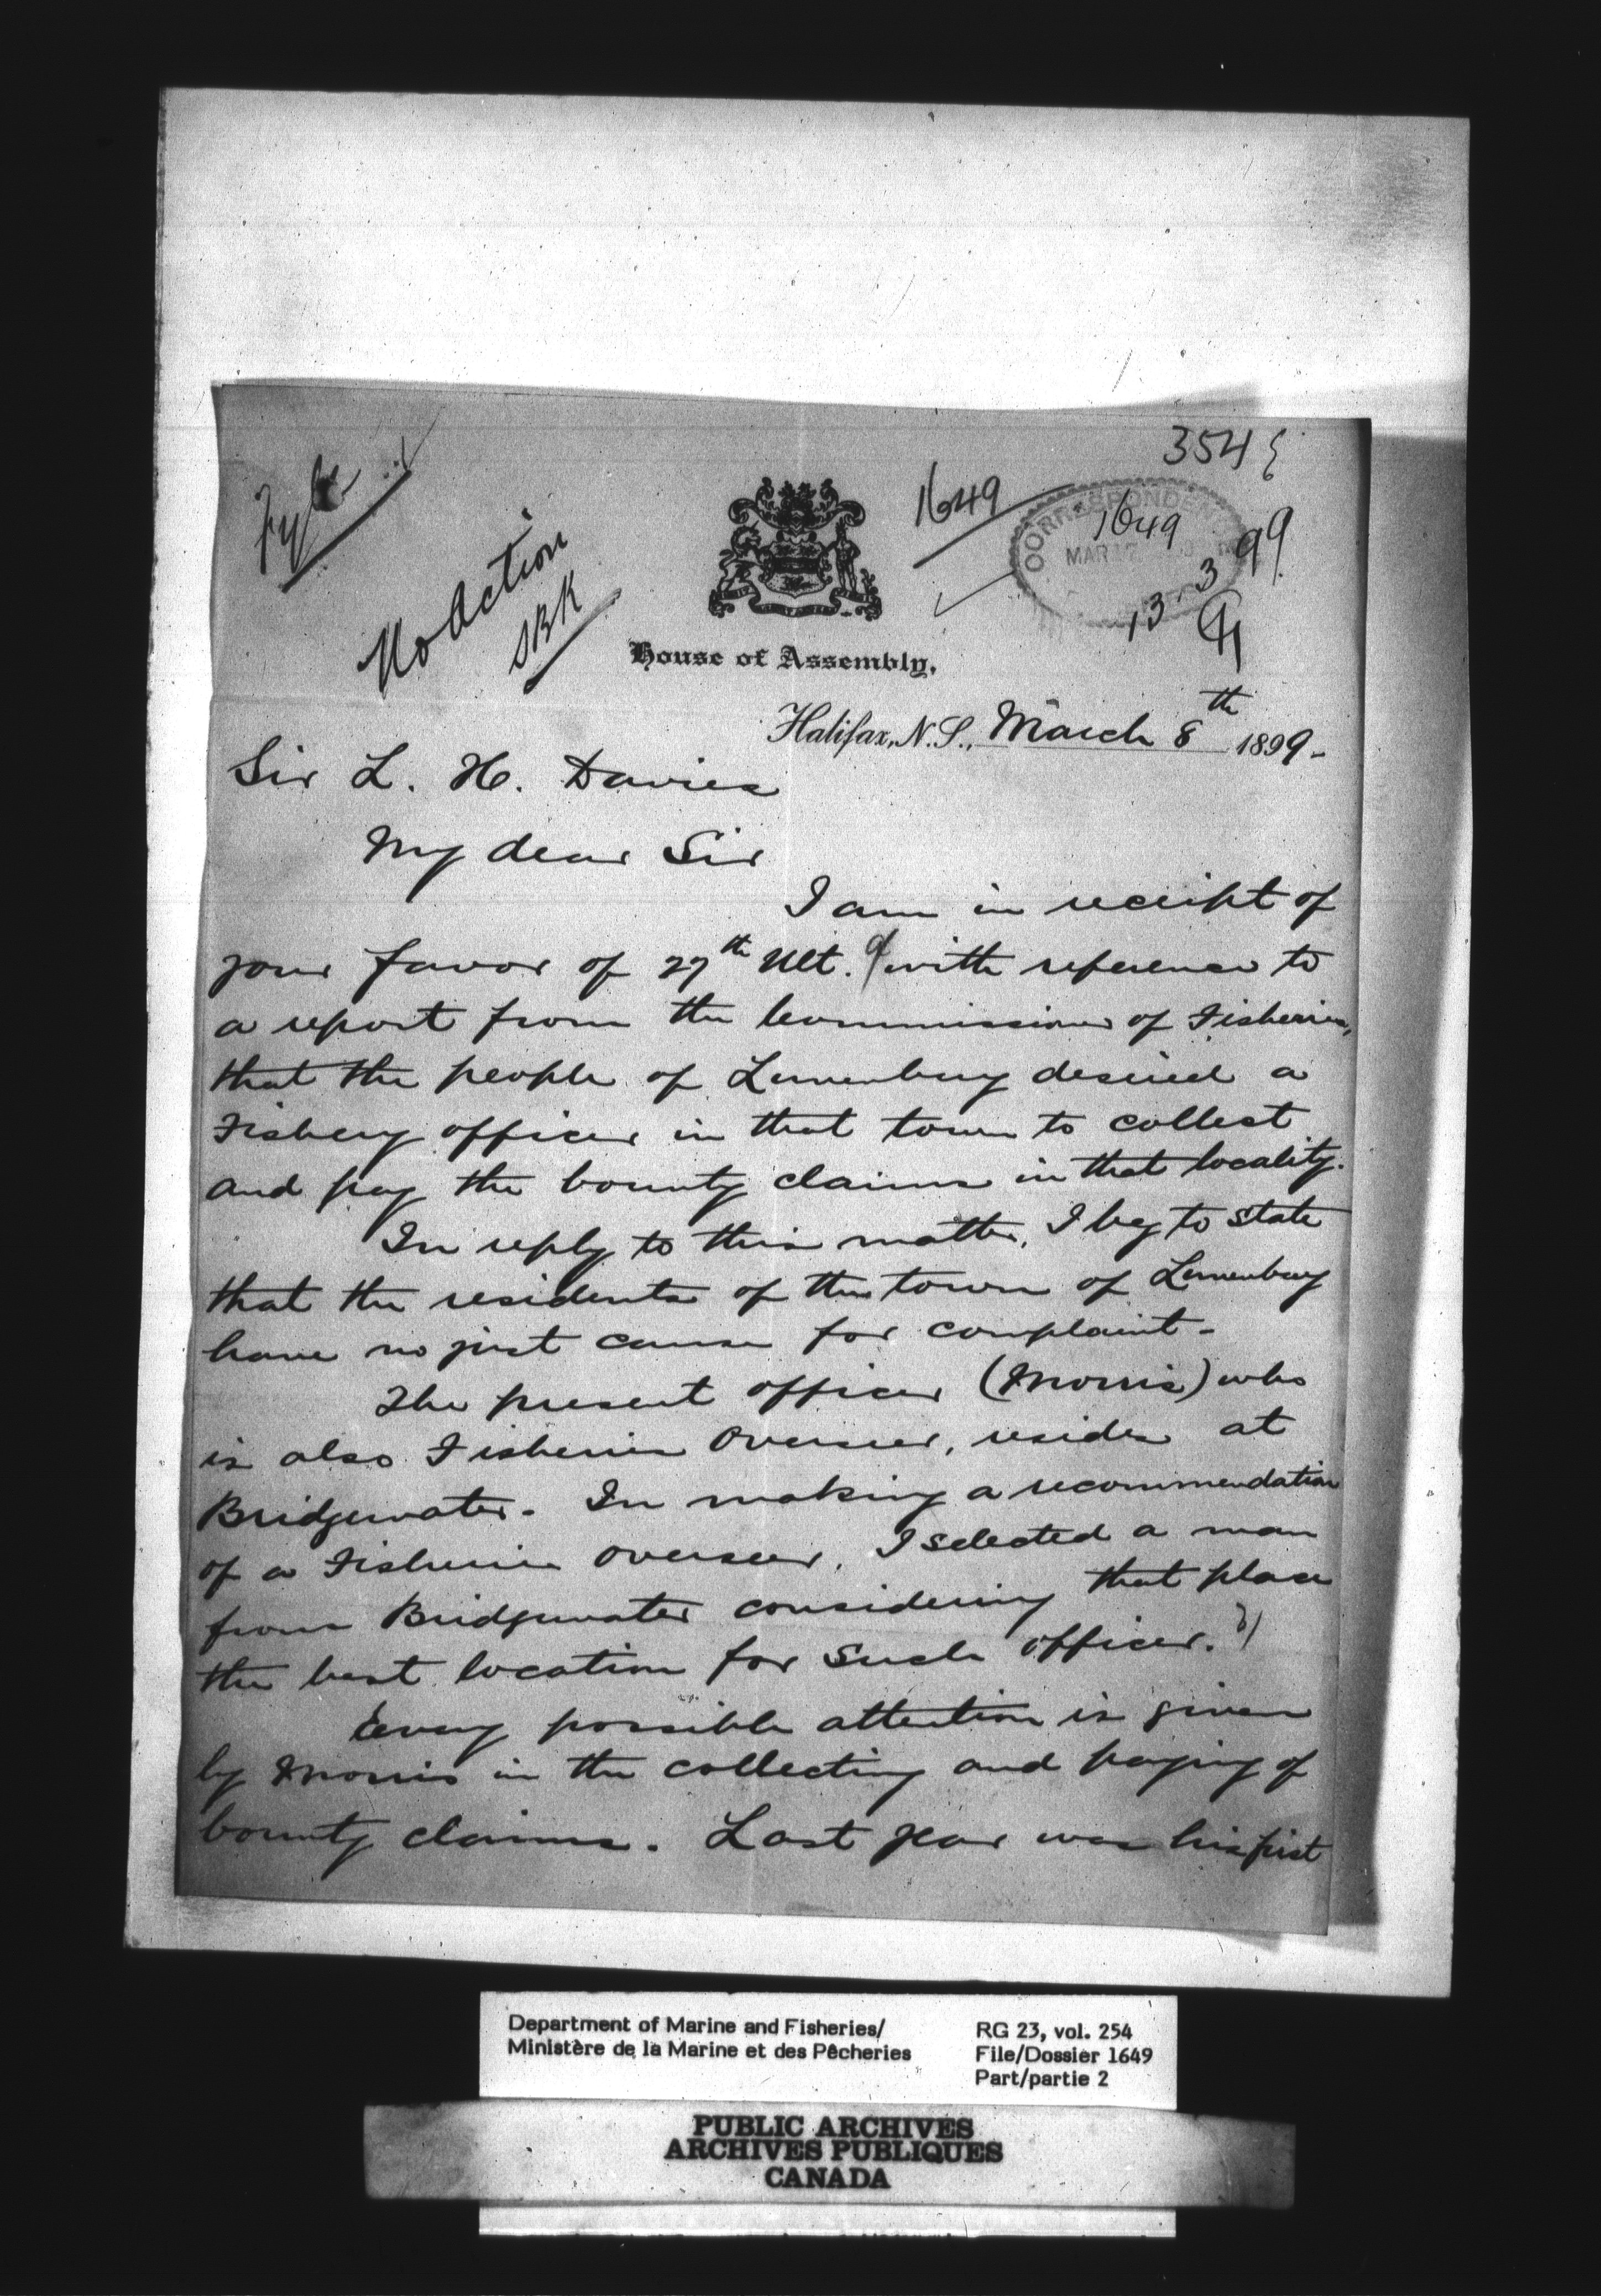 Fyle
No Action
SBK
1649
354
CORRESPONDEN
1649
MAR 17
13.3.99
House of Assembly,
Halifax, N.S., March 8th 1899-
Sir L. H. Davies
My dear Sir
I am in receipt of
your favor of 27th Ult. with reference to
a report from the Commissioner of Fisheries,
that the people of Lunenburg desired a
Fishery officer in that town to collect
and pay the bounty claims in that locality.
In reply to this matter, I beg to state
that the residents of the town of Lunenburg
have no just cause for complaint-
The present officer (Morris) who
is also Fisheries Overseer, resides at
Bridgewater. In making a recommendation
of a Fisheries overseer, I selected a man
from Bridgewater considering that place
the best location for such officer.
Every possible attention is given
by Morris in the collecting and paying of
bounty claims. Last year was his first
Department of Marine and Fisheries/
Ministère de la Marine et des Pêcheries
RG 23, vol. 254
File/Dossier 1649
Part/partie 2
PUBLIC ARCHIVES
ARCHIVES PUBLIQUES
CANADA